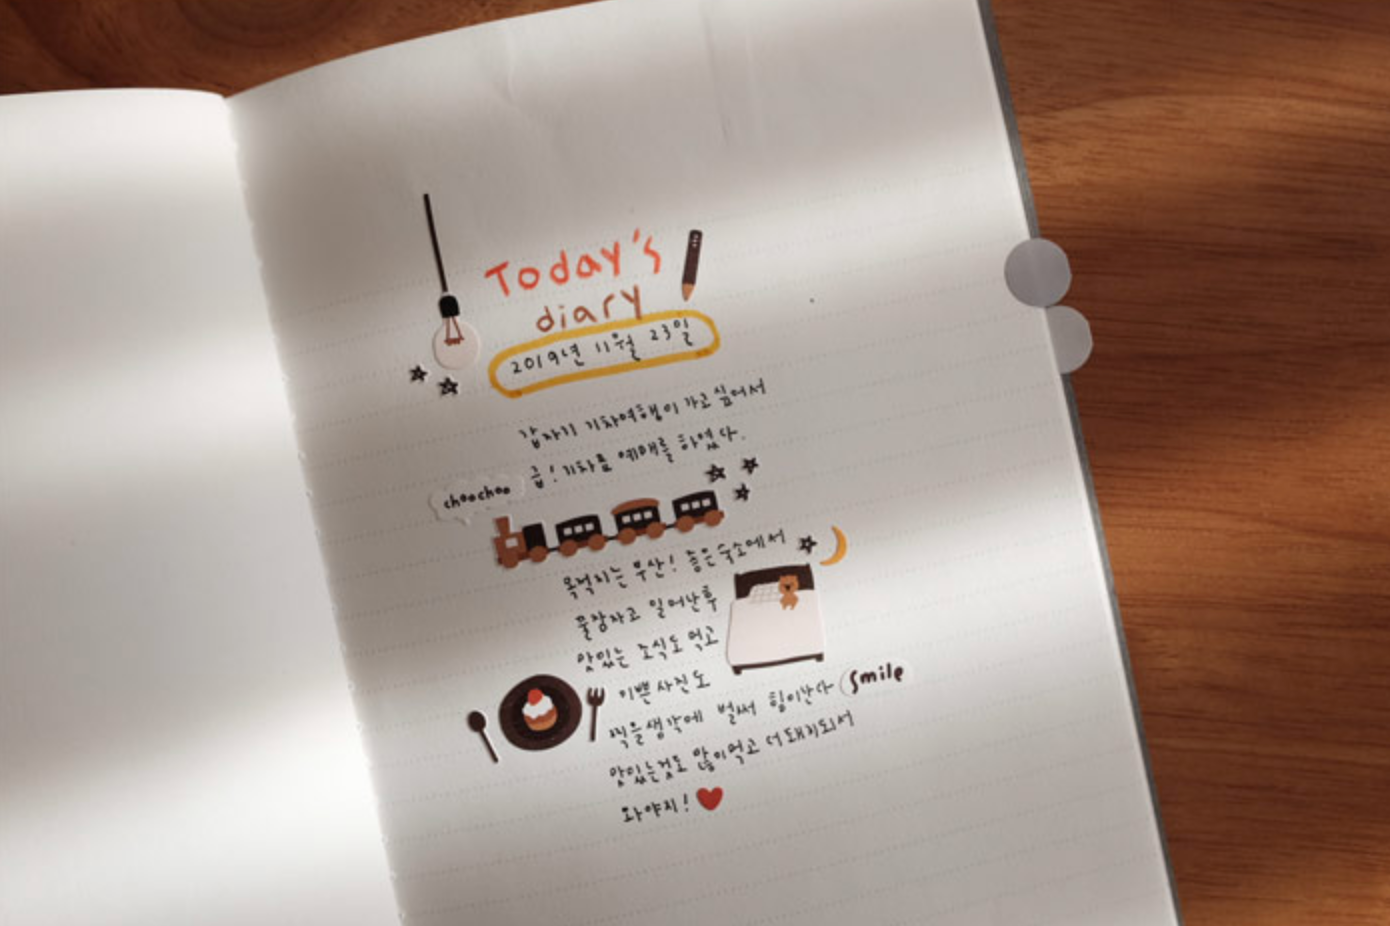 Today's
diary
2019년 11월 23일
갑자기 기차여행이 가고싶어서
급! 기차표 예매를 하였다.
choochoo
목적지는 부산! 좋은숙소에서
꿀잠자고 일어난후
맛있는 조식도 먹고
이쁜 사진도
찍을생각에 벌써 힘이난다 Smile
맛있는것도 많이먹고 더돼지되서
와야지!